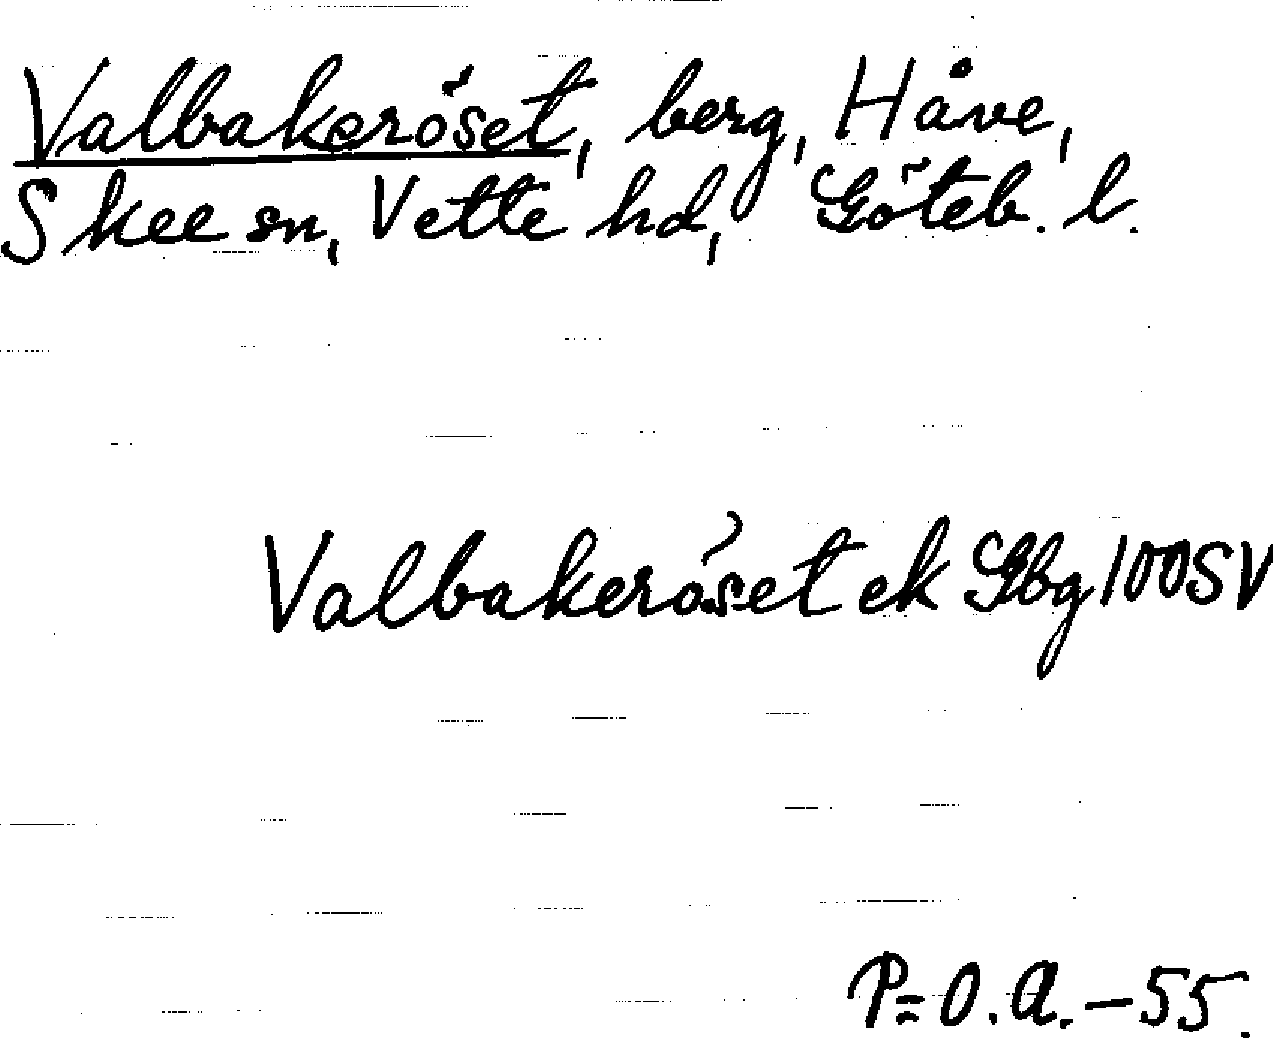 Valbakeröset, berg, Håve,
Skee sn, Vette hd, Göteb. l.
Valbakeröset ek Gbg 100SV
P=O.A.-55.